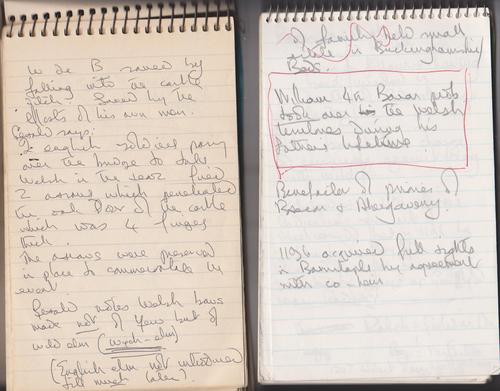 W de B saved by
falling into the castle
ditch - Saved by the
efforts of his own men.
Gerald says:
2 english soldiers
over the bridge to
Welsh in the fired
2 arrows which penetrated
the oak door of the castle
which was 4 fingers
thick.
The arrows were preserved
in place to commemorate the
event
Gerald notes Welsh bows
made not of Yew but of
wild elm (Wych-elm)
(English elm not introduced
till much later).
of family held small
in Buckinghamshire
Beds.
William 4th Baron
today over the welsh
territories during his
fathers lifetime.
Benefactor of priories of
Brecon & Abergavenny.
1196 acquired full rights
in Barnstaple by agreement
with co-heirs